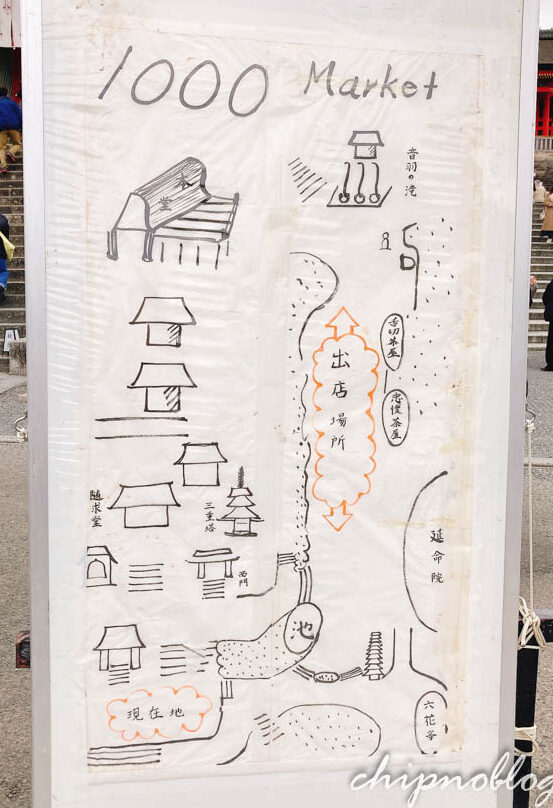 1000 Market
本堂
音羽の滝
舌切茶屋
出店場所
忠僕茶屋
随求堂
三重塔
西門
延命院
池
現在地
六花亭
chipnoblog